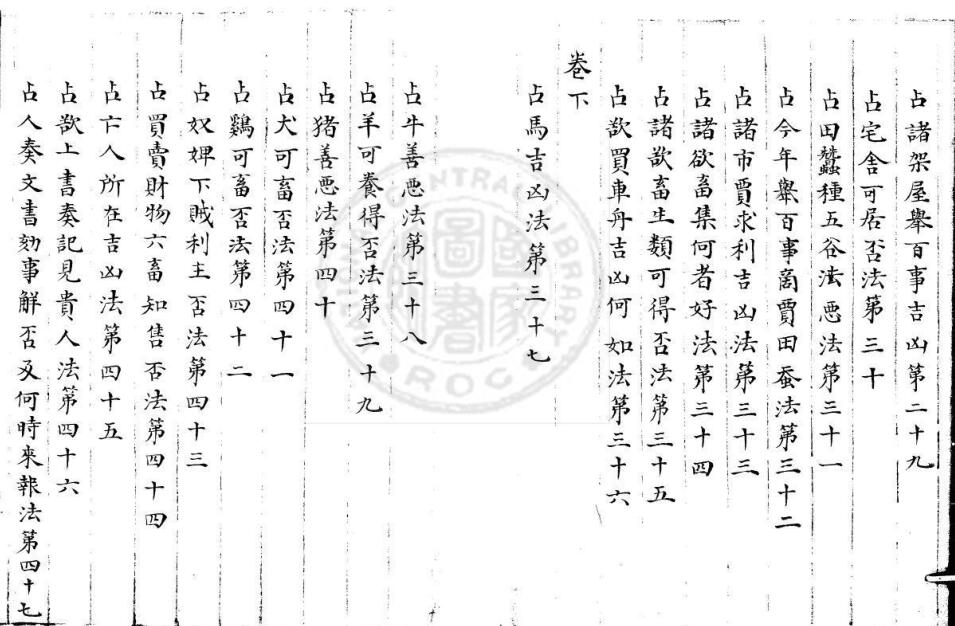 占諸架屋舉百事吉凶第二十九
占宅舍可居否法第三十
占田蠶種五谷法悪法第三十一
占今年舉百事啇賈田蚕法第三十二
占諸市賈求利吉凶法第三十三
占諸欲畜集何者好法第三十四
占諸欲畜生類可得否法第三十五
占欲買車舟吉凶何如法第三十六
卷下
占馬吉凶法第三十七
占牛善悪法第三十八
占羊可養得否法第三十九
占猪善悪法第四十
占犬可畜否法第四十一
占鷄可畜否法第四十二
占奴婢下賊利主否法第四十三
占買賣財物六畜知售否法第四十四
占亡人所在吉凶法第四十五
占欲上書奏記見貴人法第四十六
占人奏文書劾事解否及何時來報法第四十七
NATIONAL CENTRAL LIBRARY R.O.C.
國家圖書館